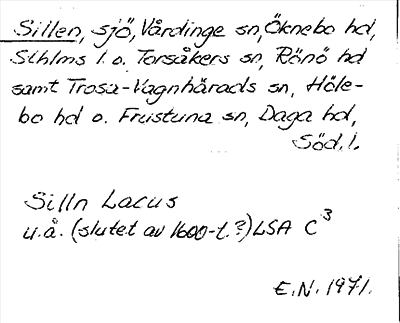 Sillen, sjö, Vårdinge sn, Öknebo hd,
Sthlms l. o. Torsåkers sn, Rönö hd
samt Trosa-Vagnhärads sn, Höle-
bo hd o. Frustuna sn, Daga hd,
Söd. l.
Silln Lacus
u.å. (slutet av 1600-t.?) LSA C³
E.N. 1971.